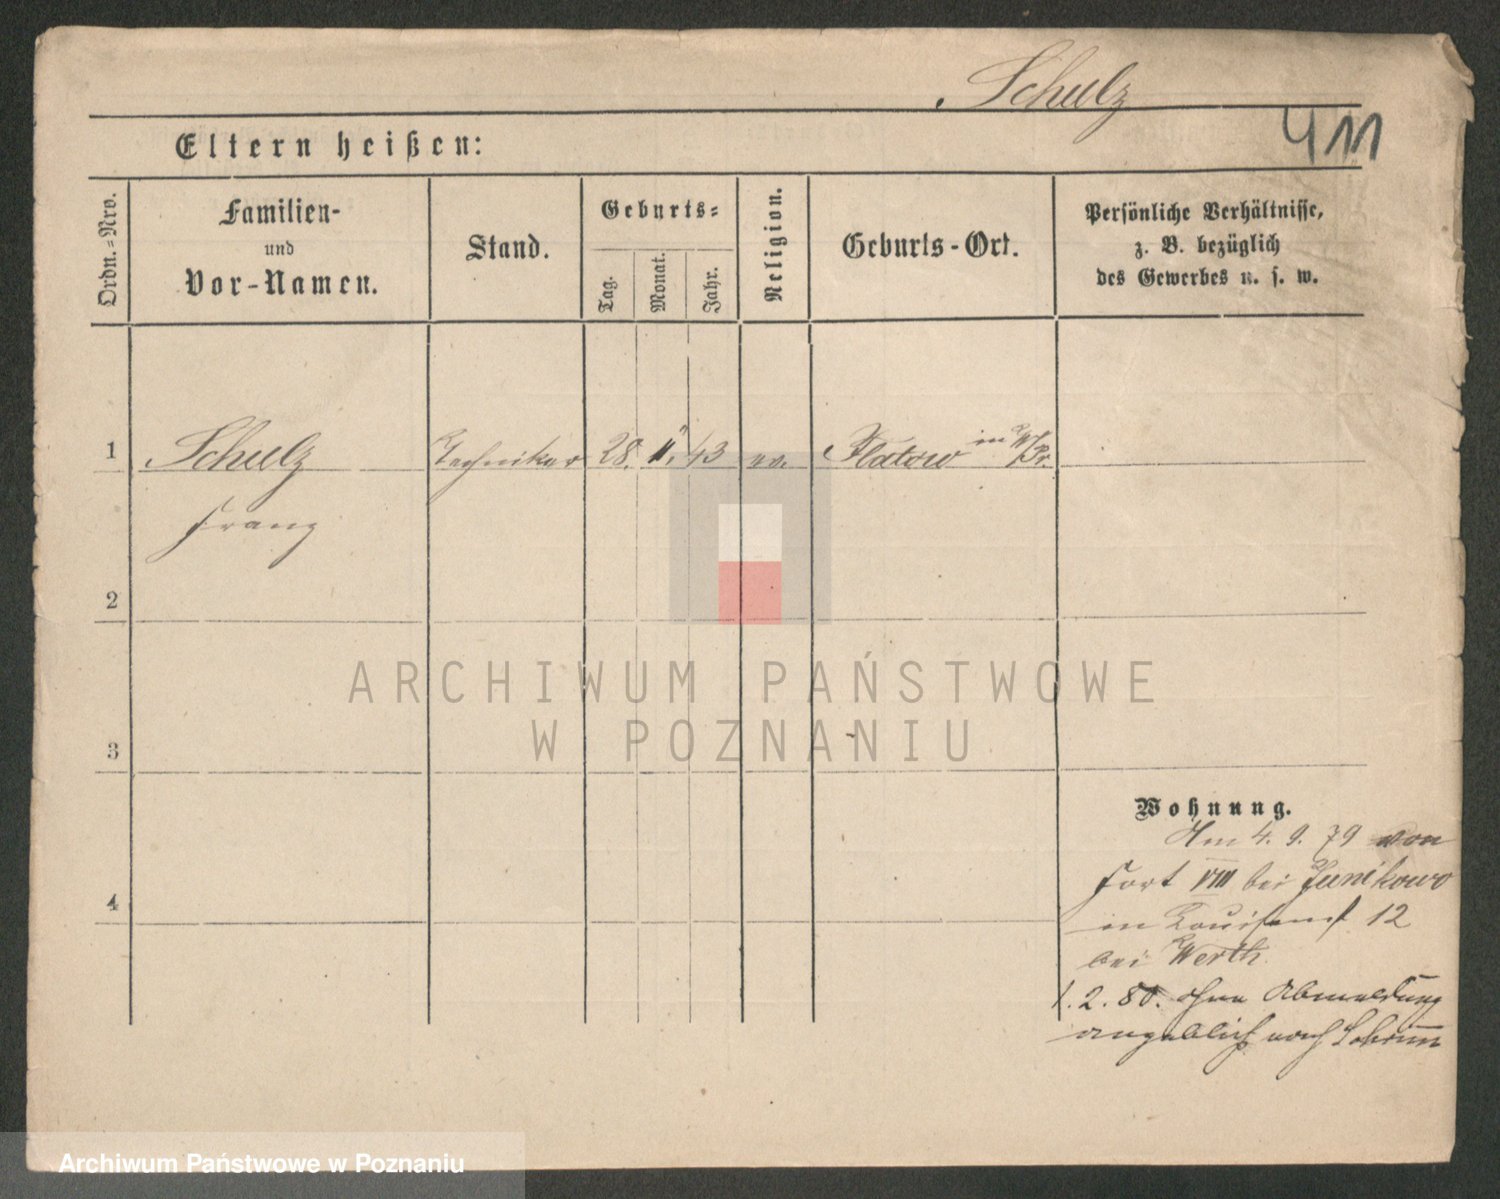 Schulz
411
Eltern heißen:
Ordn.-Nro.
Familien-
und
Vor-Namen.
Stand.
Geburts-
Tag.
Monat.
Jahr.
Religion.
Geburts-Ort.
Persönliche Verhältnisse,
z. B. bezüglich
des Gewerbes u. s. w.
1 Schulz Techniker 28. 11. 43 ev. Flatow in W/Pr.
Franz
2
3
4
Wohnung.
Am 4. 9. 79 von
Fort VIII bei Junikowo
in Louisenst 12
bei Werth.
1. 2. 80. ohne Abmeldung
angeblich nach
ARCHIWUM PAŃSTWOWE
W POZNANIU
Archiwum Państwowe w Poznaniu